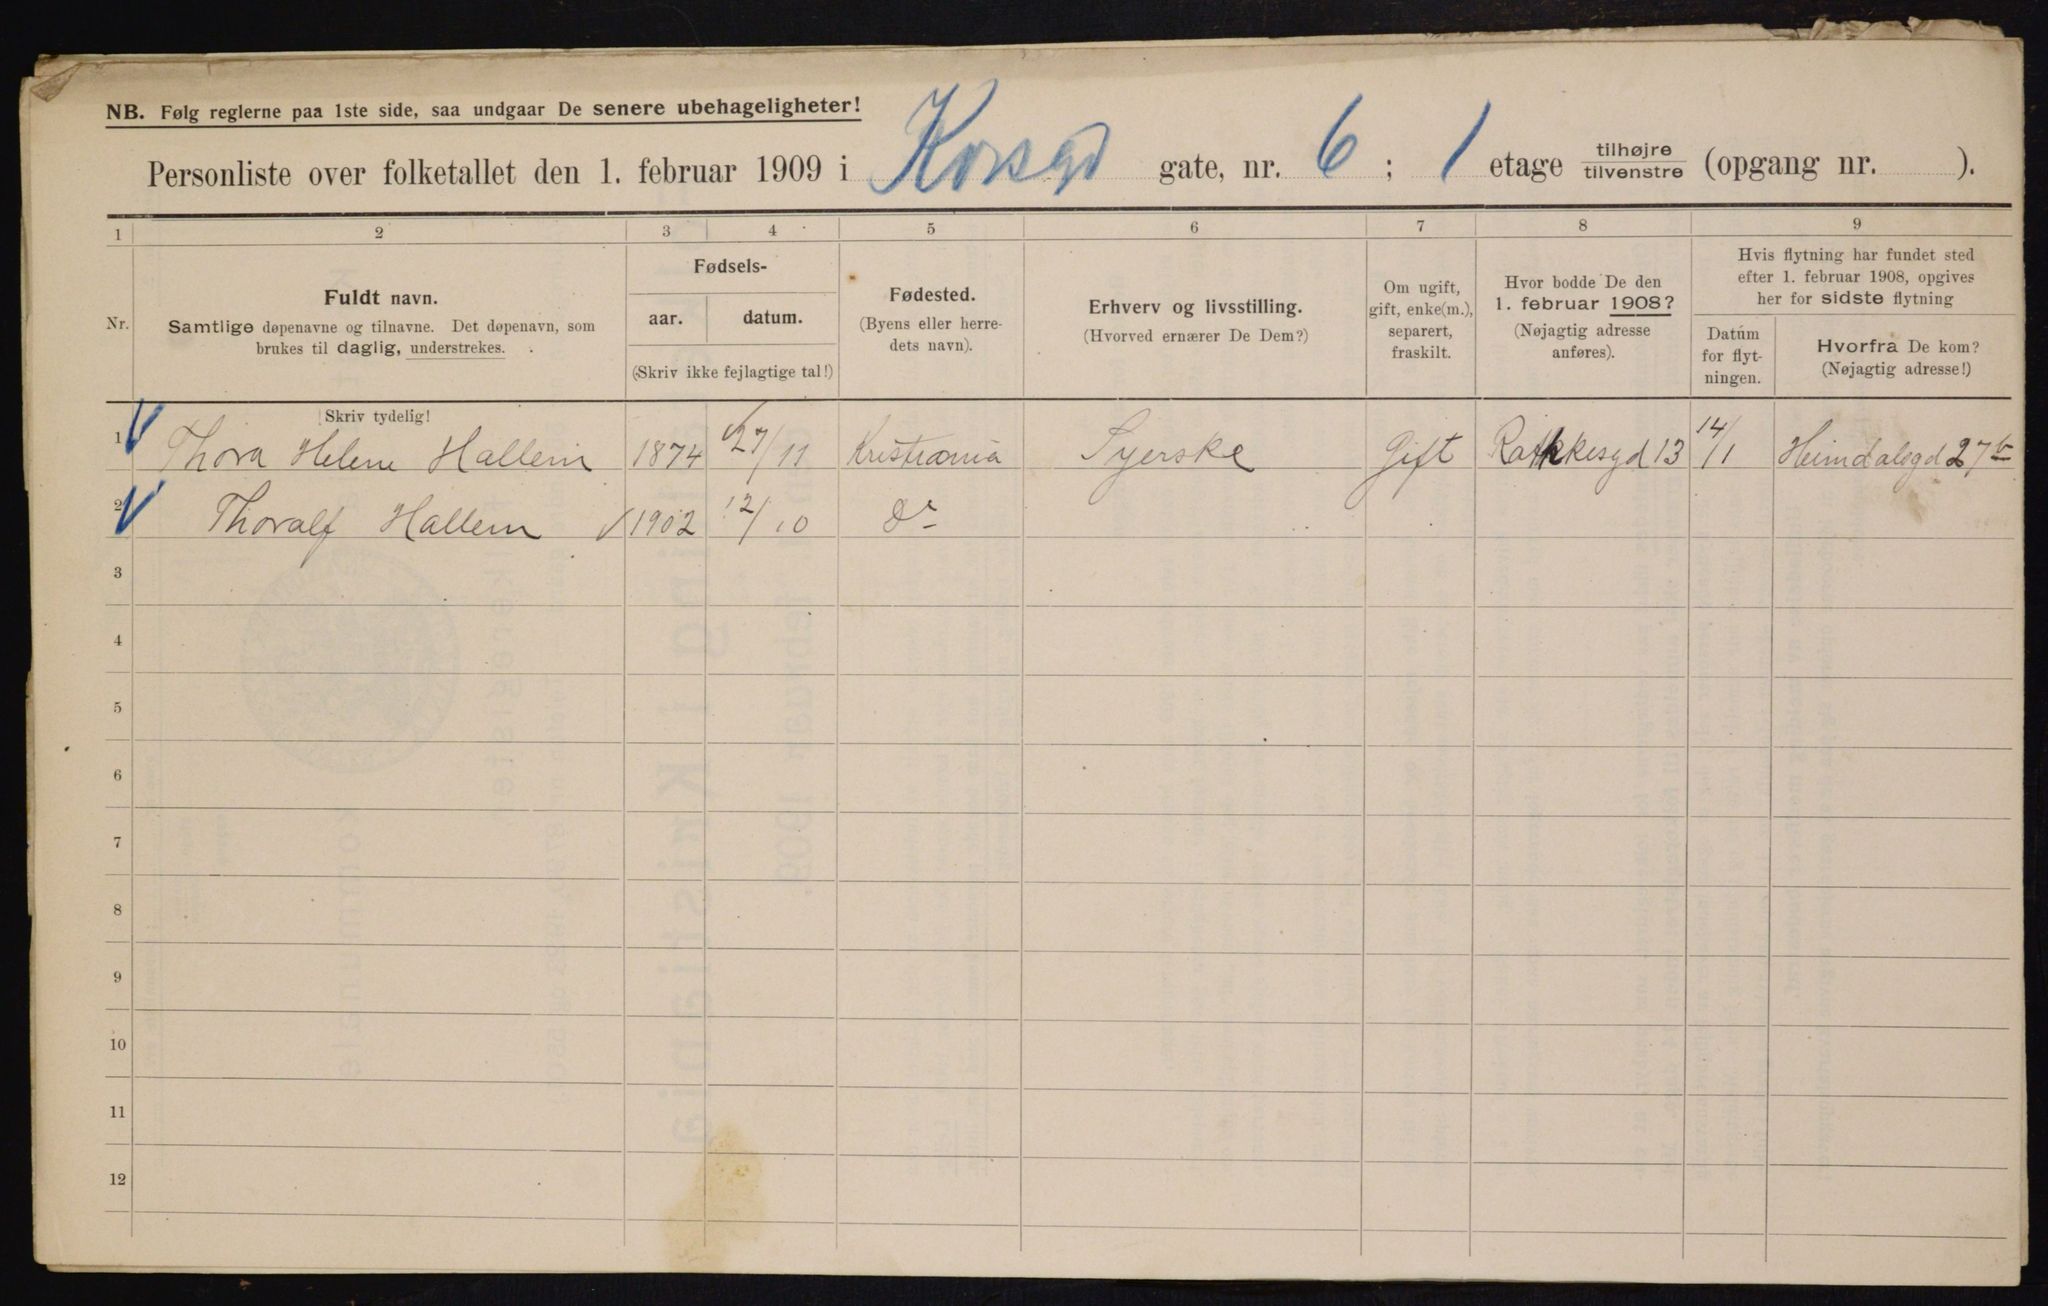 NB. Følg reglerne paa 1ste side, saa undgaar De senere ubehageligheter!
Personliste over folketallet den 1. februar 1909 i Korsgd gate, nr. 6 ; 1 etage tilhøjre / tilvenstre (opgang nr. ).
1 2 3 4 5 6 7 8 9
Nr.
Fuldt navn.
Samtlige døpenavne og tilnavne. Det døpenavn, som
brukes til daglig, understrekes.
Fødsels-
aar. datum.
(Skriv ikke fejlagtige tal!)
Fødested.
(Byens eller herre-
dets navn).
Erhverv og livsstilling.
(Hvorved ernærer De Dem?)
Om ugift,
gift, enke(m.),
separert,
fraskilt.
Hvor bodde De den
1. februar 1908?
(Nøjagtig adresse
anføres).
Hvis flytning har fundet sted
efter 1. februar 1908, opgives
her for sidste flytning
Datum
for flyt-
ningen.
Hvorfra De kom?
(Nøjagtig adresse!)
Skriv tydelig!
1 Thora Helene Hallem 1874 27/11 Kristiania Syerske Gift Rathkesgd 13 14/1 Heimdalsgd 27b
2 Thoralf Hallem 1902 12/10 Do
3
4
5
6
7
8
9
10
11
12